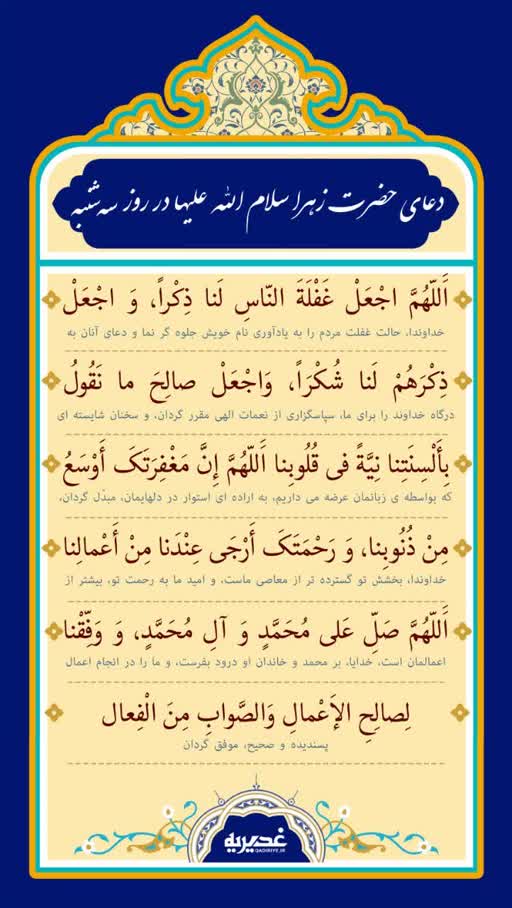 دعای حضرت زهرا سلام الله علیها در روز سه‌شنبه
أَللّهُمَّ اجْعَلْ غَفْلَةَ النّاسِ لَنا ذِكْراً، وَ اجْعَلْ
خداوندا، حالت غفلت مردم را به یادآوری نام خویش جلوه گر نما و دعای آنان به
ذِكْرَهُمْ لَنا شُكْرَاً، وَاجْعَلْ صالِحَ ما نَقُولُ
درگاه خداوند را برای ما، سپاسگزاری از نعمات الهی مقرر گردان، و سخنان شایسته ای
بِأَلْسِنَتِنا نِيَّةً فی قُلُوبِنا أَللّهُمَّ إِنَّ مَغْفِرَتَکَ أَوْسَعُ
که بواسطه ی زبانمان عرضه می داریم، به اراده ای استوار در دلهایمان، مبدّل گردان،
مِنْ ذُنُوبِنا، وَ رَحْمَتَکَ أَرْجَی عِنْدَنا مِنْ أَعْمالِنا
خداوندا، بخشش تو گسترده تر از معاصی ماست، و امید ما به رحمت تو، بیشتر از
أَللّهُمَّ صَلِّ عَلی مُحَمَّدٍ وَ آلِ مُحَمَّدٍ، وَ وَفِّقْنا
اعمالمان است، خدایا، بر محمد و خاندان او درود بفرست، و ما را در انجام اعمال
لِصالِحِ الإَعْمالِ وَالصَّوابِ مِنَ الْفِعال
پسندیده و صحیح، موفق گردان
غدیریه
QADIRIYE.IR